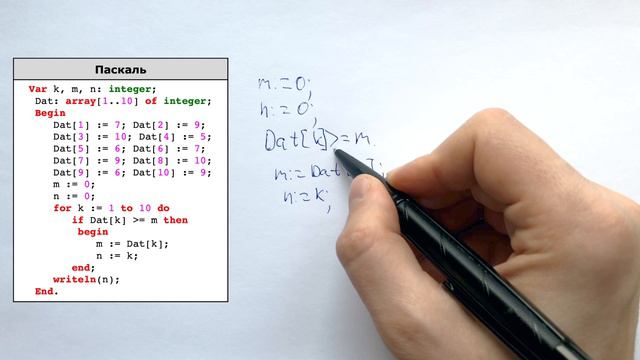 Паскаль
Var k, m, n: integer;
Dat: array[1..10] of integer;
Begin
Dat[1] := 7; Dat[2] := 9;
Dat[3] := 10; Dat[4] := 5;
Dat[5] := 6; Dat[6] := 7;
Dat[7] := 9; Dat[8] := 10;
Dat[9] := 6; Dat[10] := 9;
m := 0;
n := 0;
for k := 1 to 10 do
if Dat[k] >= m then
begin
m := Dat[k];
n := k;
end;
writeln(n);
End.
m:=0;
n:=0;
Dat[k]>=m
m:=Dat
n:=k;